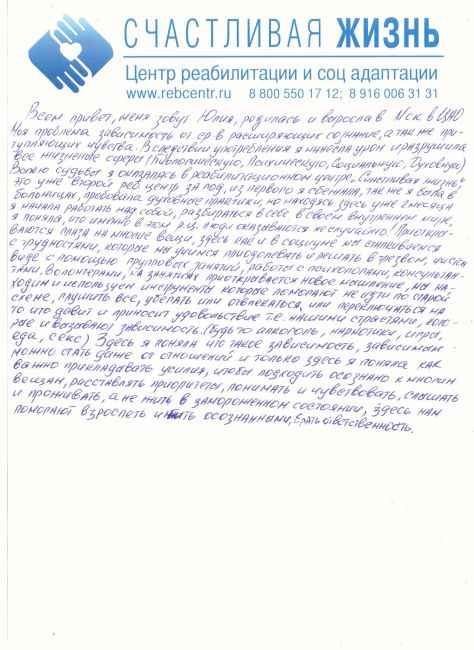 СЧАСТЛИВАЯ ЖИЗНЬ
Центр реабилитации и соц адаптации
www.rebcentr.ru 8 800 550 17 12; 8 916 006 31 31
Всем привет, меня зовут Юлия, родилась и выросла в Мск в ЦАО
Моя проблема зависимость от ср-в расширяющих сознание, а так же при-
тупляющих чувства. В следствии употребления я нанесла урон и разрушила
все жизненые сферы (Биологическую, Психическую, Социальную, Духовную)
Волею судьбы я оказалась в реабилитационном центре „Счастливая жизнь"
это уже второй реб. центр за год, из первого я сбежала, так же я была в
больницах, пробовала духовные практики, но находясь здесь уже 2 месяца
я начала работать над собой, разбираться в себе в своём внутреннем мире,
я поняла, что именно в этом р.ц. люди оказываются не случайно! Приоткры-
ваются глаза на многие вещи, здесь как и в социуме мы сталкиваемся
с трудностями, которые мы учимся преодолевать и решать в трезвом, чистом
виде с помощью групповых занятий, работы с психологами, консультан-
тами, волонтерами, на занятиях приоткрывается новое мышление, мы на-
ходим и используем инструменты которые помогают не идти по старой
схеме, глушить все, убегать или отвлекаться, или переключаться на
то что давит и приносит удовольствие т.е. нашими страстями, кото-
рые и вызывают зависимость. (будь то алкоголь, наркотики, игры,
еда, секс) Здесь я поняла что такое зависимость, зависимым
можно стать даже от отношений и только здесь я поняла как
важно прикладывать усилия, чтобы подходить осознано к многим
вещам, расставлять приоритеты, понимать и чувствовать, слышать
и проживать, а не жить в замороженном состоянии, здесь нам
помогают взрослеть и жить осознанными, брать ответственность.